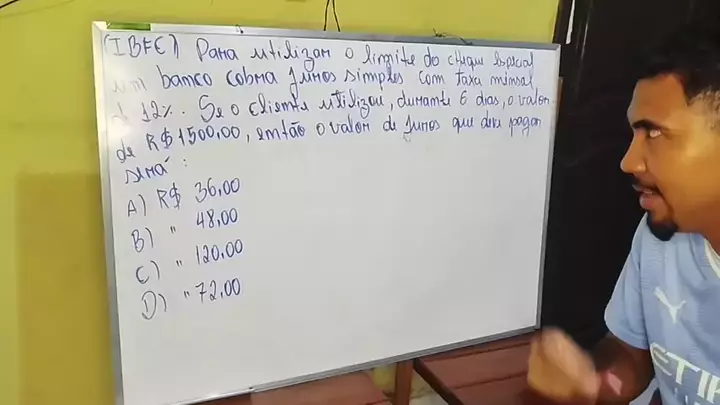 (IBFC) Para utilizar o limite do cheque especial
um banco cobra juros simples com taxa mensal
d 12%. Se o cliente utilizou, durante 6 dias, o valor
de R$1500,00, então o valor de juros que deve pagar
será:
A) R$ 36,00
B) " 48,00
C) " 120,00
D) " 72,00
ETI